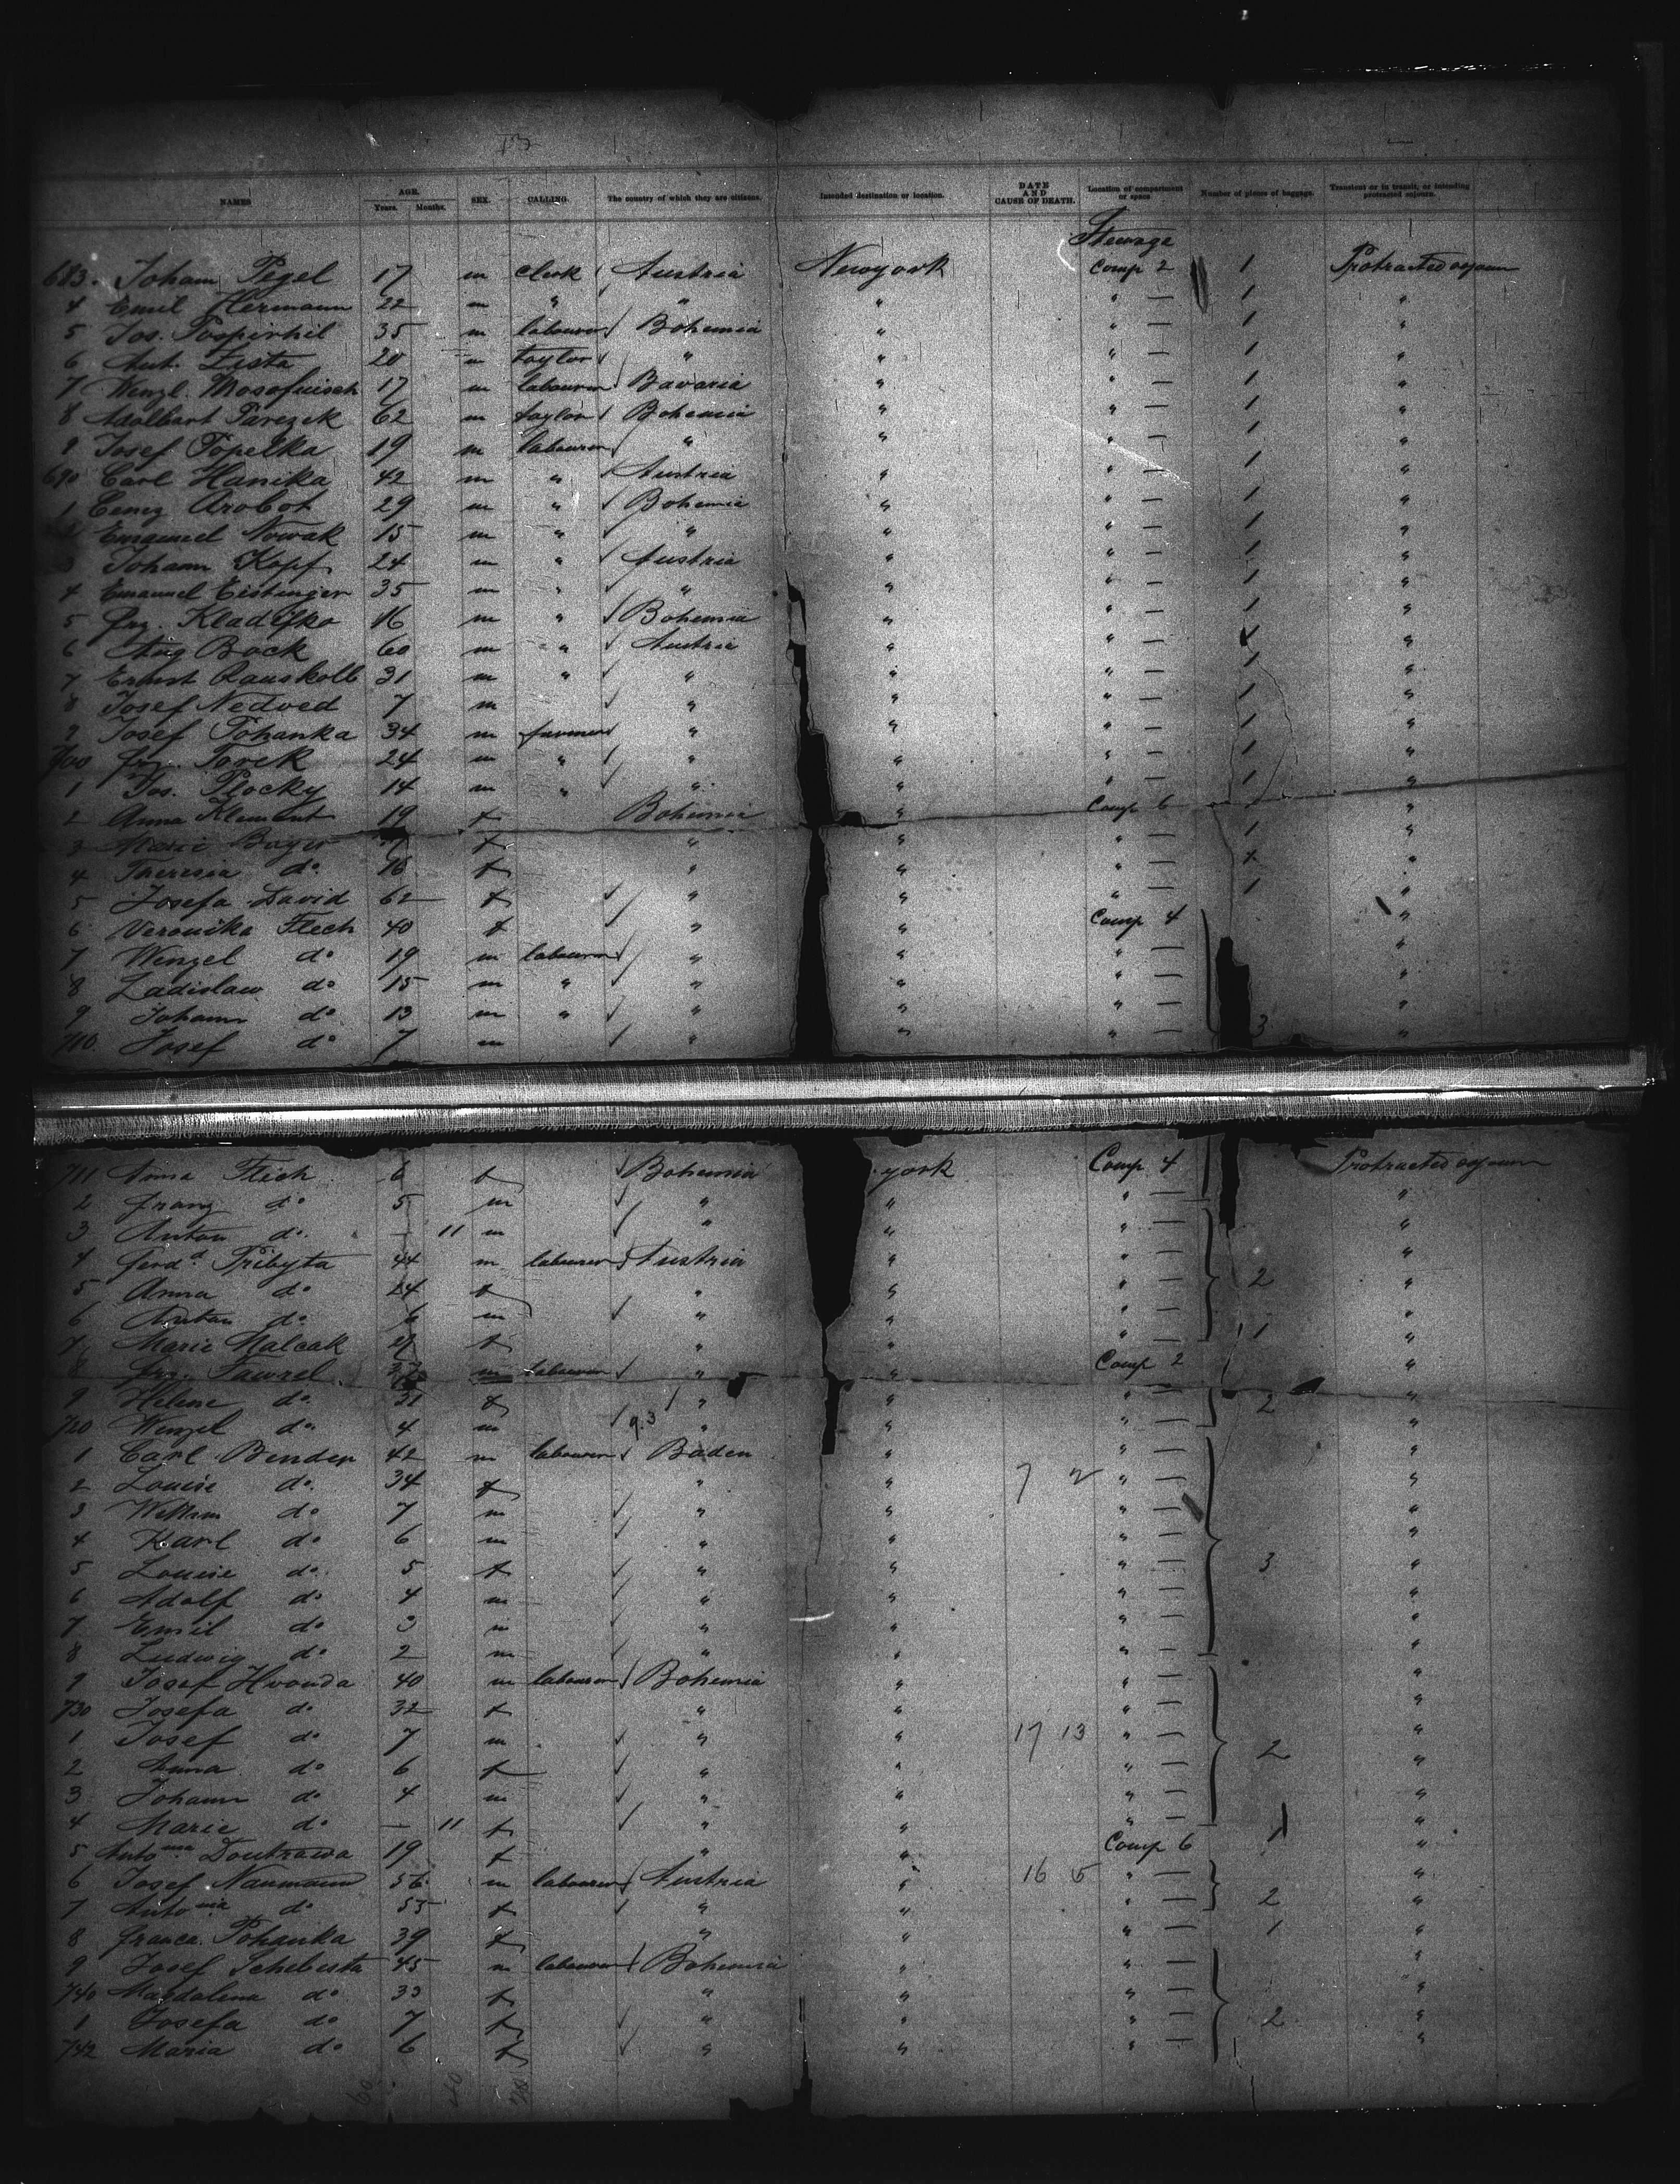 NAMES AGE. Years. Months. SEX. CALLING. The country of which they are citizens. Intended destination or location. DATE AND CAUSE OF DEATH. Location of compartment or space Number of pieces of baggage. Transient or in transit, or intending protracted sojourn.
Steerage
683. Johann Pegel 17 m clerk Austria Newyork Comp 2 1 Protracted
4 Emil Hermann 22 m " " " " — 1 "
5 Jos. Pospirhil 35 m labourer Bohemia " " — 1 "
6 Ant. Zesta 20 m taylor " " " — 1 "
7 Wenzl. 17 m labourer Bavaria " " — 1 "
8 Adalbert Parezek 62 m taylor Bohemia " " — 1 "
9 Josef Popelka 19 m labourer " " " — 1 "
690 Carl Hanika 42 m " Austria " " — 1 "
1 Arobot 29 m " Bohemia " " — 1 "
2 Emanuel Nowak 15 m " " " " — 1 "
3 Johann Kopf 24 m " Austria " " — 1 "
4 Emanuel Eistinger 35 m " " " " — 1 "
5 Frz. 16 m " Bohemia " " — 1 "
6 Aug Bock 60 m " Austria " " — "
7 Ernst Rauskolb 31 m " " " " — 1 "
8 Josef Nedved 7 m " " " — 1 "
9 Josef Pohanka 34 m farmer " " " — 1 "
700 Frz. Torek 24 m " " " " — 1 "
1 Jos. Plocky 14 m " " " " — 1 "
2 Anna Klement 19 f Bohemia " Comp 6 "
3 Marie Bayer f " " " — 1 "
4 Theresia do. 16 f " " " — "
5 Josefa David 62 f " " " — 1 "
6 Veronika Flech 40 f " " Comp 4 "
7 Wenzel do 19 m labourer " " " — "
8 Ladislaw do 15 m " " " " — "
9 Johann do 13 m " " " " — "
710 Josef do 7 m " " " — 3 "
711 Anna Flech 6 f Bohemia york Comp 4 Protracted
2 Franz do 5 m " " " — "
3 Anton do. — 11 m " " " — "
4 Ferd. Pribyta 44 m labourer Austria " " — "
5 Anna do 24 f " " " — 2 "
6 Anton do. 6 m " " " — "
7 Marie Malcak f " " " — 1 "
8 Frz. Tawrel m labourer " " Comp 2 "
9 Helene do. 31 f " " " — 2 "
720 Wenzel do. 4 m " " " — "
1 Carl Bender 42 m labourer Baden " " — "
2 Louise do. 34 f " " 7 2 " — "
3 William do 7 m " " " — "
4 Karl do 6 m " " " — "
5 Louise do. 5 f " " " — 3 "
6 Adolf do 4 m " " " — "
7 Emil do 3 m " " " — "
8 Ludwig do 2 m " " " — "
9 Josef Hvonda 40 m labourer Bohemia " " — "
730 Josefa do 32 f " " " — "
1 Josef do 7 m " " 17 13 " — 2 "
2 Anna do 6 f " " " — "
3 Johann do 4 m " " " — "
4 Marie do — 11 f " " — "
5 Antonia Doutrawa 19 f " " Comp 6 1 "
6 Josef Naumann 56 m labourer Austria " 16 5 " — "
7 Antonia do 55 f " " " — 2 "
8 Franca. Pohanka 39 f " " " — 1 "
9 Josef Schebesta 45 m labourer Bohemia " " — "
740 Magdalena do 33 f " " " — "
1 Josefa do 7 f " " " — 2 "
742 Maria do 6 f " " " — "